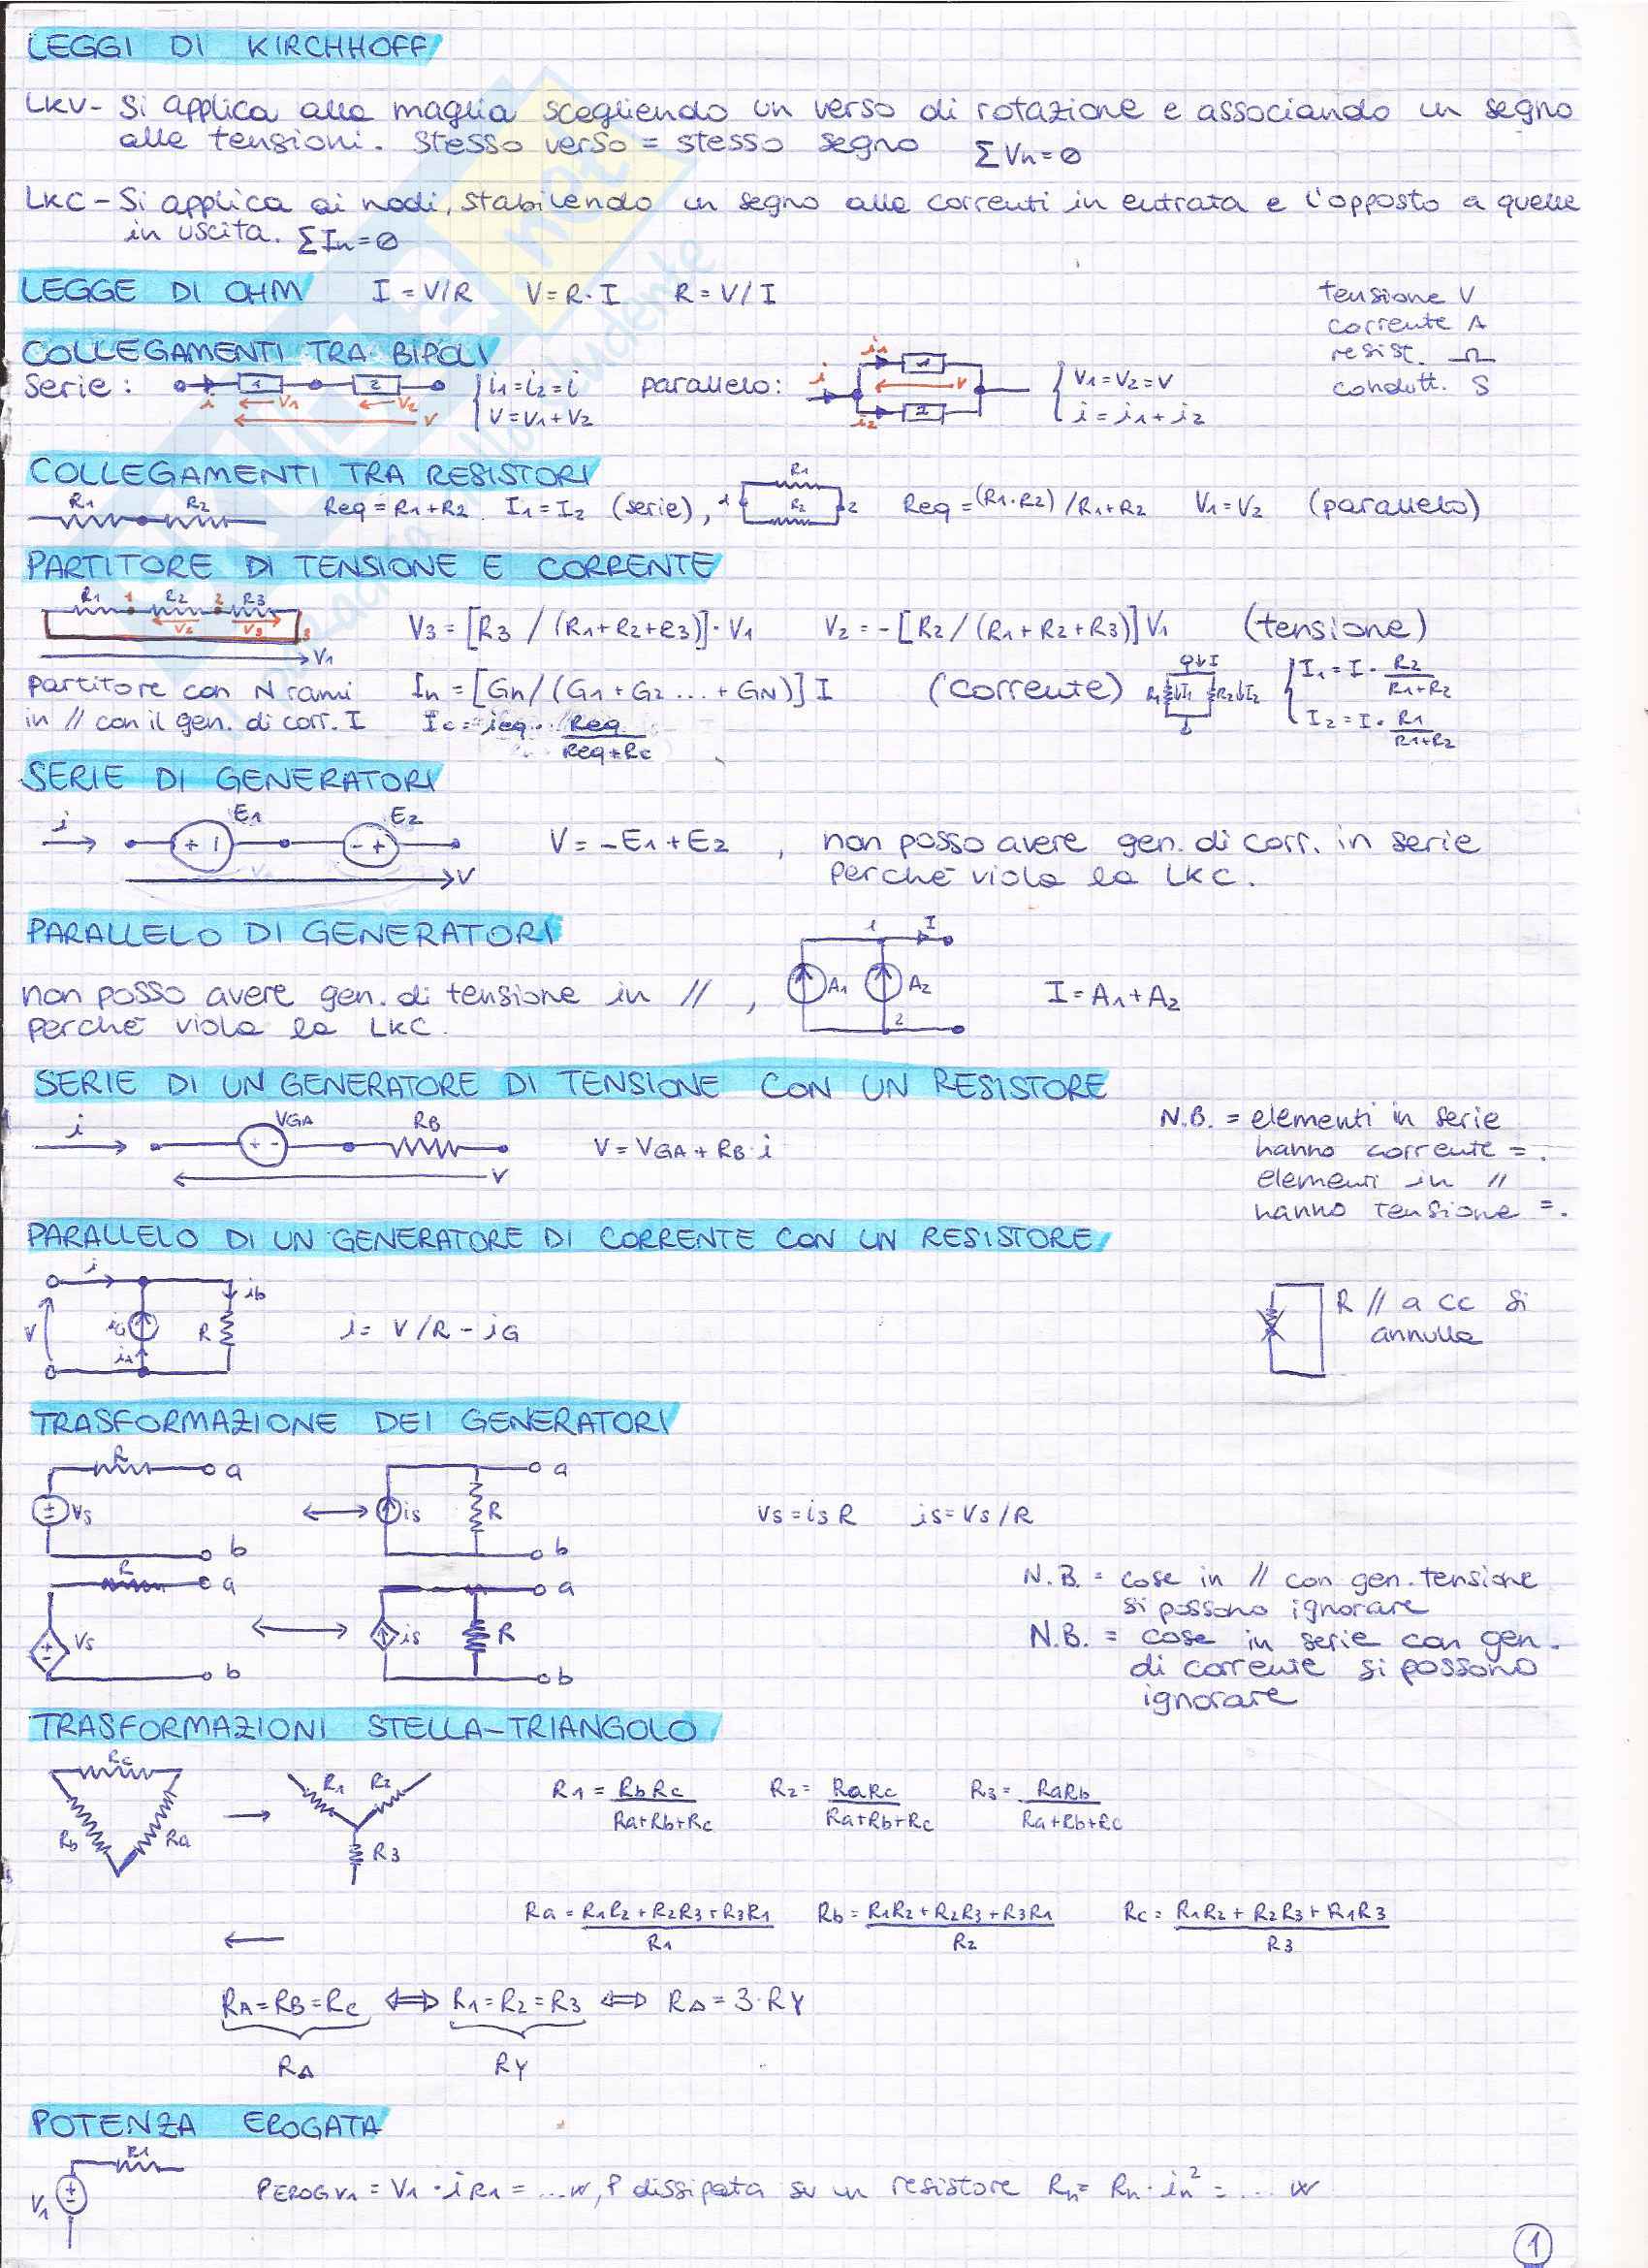 LEGGI DI KIRCHHOFF
LKV - Si applica alla maglia scegliendo un verso di rotazione e associando un segno
alle tensioni. Stesso verso = stesso segno ΣVn=0
LKC - Si applica ai nodi, stabilendo un segno alle correnti in entrata e l'opposto a quelle
in uscita. ΣIn=0
LEGGE DI OHM I = V/R V=R·I R=V/I
tensione V
corrente A
resist. Ω
condutt. S
COLLEGAMENTI TRA BIPOLI
serie: 1 2 i V1 V2 V i1=i2=i V=V1+V2
parallelo: i i1 i2 1 2 V V1=V2=V i=i1+i2
COLLEGAMENTI TRA RESISTORI
R1 R2 Req=R1+R2 I1=I2 (serie), 1 R1 R2 2 Req=(R1·R2)/R1+R2 V1=V2 (parallelo)
PARTITORE DI TENSIONE E CORRENTE
R1 1 R2 2 R3 V2 V3 3 V1
V3=[R3/(R1+R2+R3)]·V1 V2=-[R2/(R1+R2+R3)]V1 (tensione)
partitore con N rami In=[Gn/(G1+G2...+GN)]I (corrente) I R1 I1 R2 I2 I1=I·R2/R1+R2
in // con il gen. di corr. I Ic=ieq·Req/Req+Rc I2=I·R1/R1+R2
SERIE DI GENERATORI
i E1 E2 + - + V
V=-E1+E2, non posso avere gen. di corr. in serie
perché viola la LKC.
PARALLELO DI GENERATORI
non posso avere gen. di tensione in //,
perché viola la LKC.
1 I A1 A2 2 I=A1+A2
SERIE DI UN GENERATORE DI TENSIONE CON UN RESISTORE
i VGA + - RB V V=VGA+RB·i
N.B. = elementi in serie
hanno corrente =.
elementi in //
hanno tensione =.
PARALLELO DI UN GENERATORE DI CORRENTE CON UN RESISTORE
i V iG iA R ib i=V/R-iG
R // a cc si
annulla
TRASFORMAZIONE DEI GENERATORI
R a Vs b a is R b Vs=is R is=Vs/R
R a Vs b a is R b
N.B. = cose in // con gen. tensione
si possono ignorare
N.B. = cose in serie con gen.
di corrente si possono
ignorare
TRASFORMAZIONI STELLA-TRIANGOLO
Rc Rb Ra → R1 R2 R3
R1=RbRc/Ra+Rb+Rc R2=RaRc/Ra+Rb+Rc R3=RaRb/Ra+Rb+Rc
← Ra=R1R2+R2R3+R3R1/R1 Rb=R1R2+R2R3+R3R1/R2 Rc=R1R2+R2R3+R1R3/R3
RA=RB=RC ⇔ R1=R2=R3 ⇔ RΔ=3·RY
RΔ RY
POTENZA EROGATA
R1 V1
PEROGV1=V1·iR1=...W, P dissipata su un resistore Rn=Rn·in²=...W
1